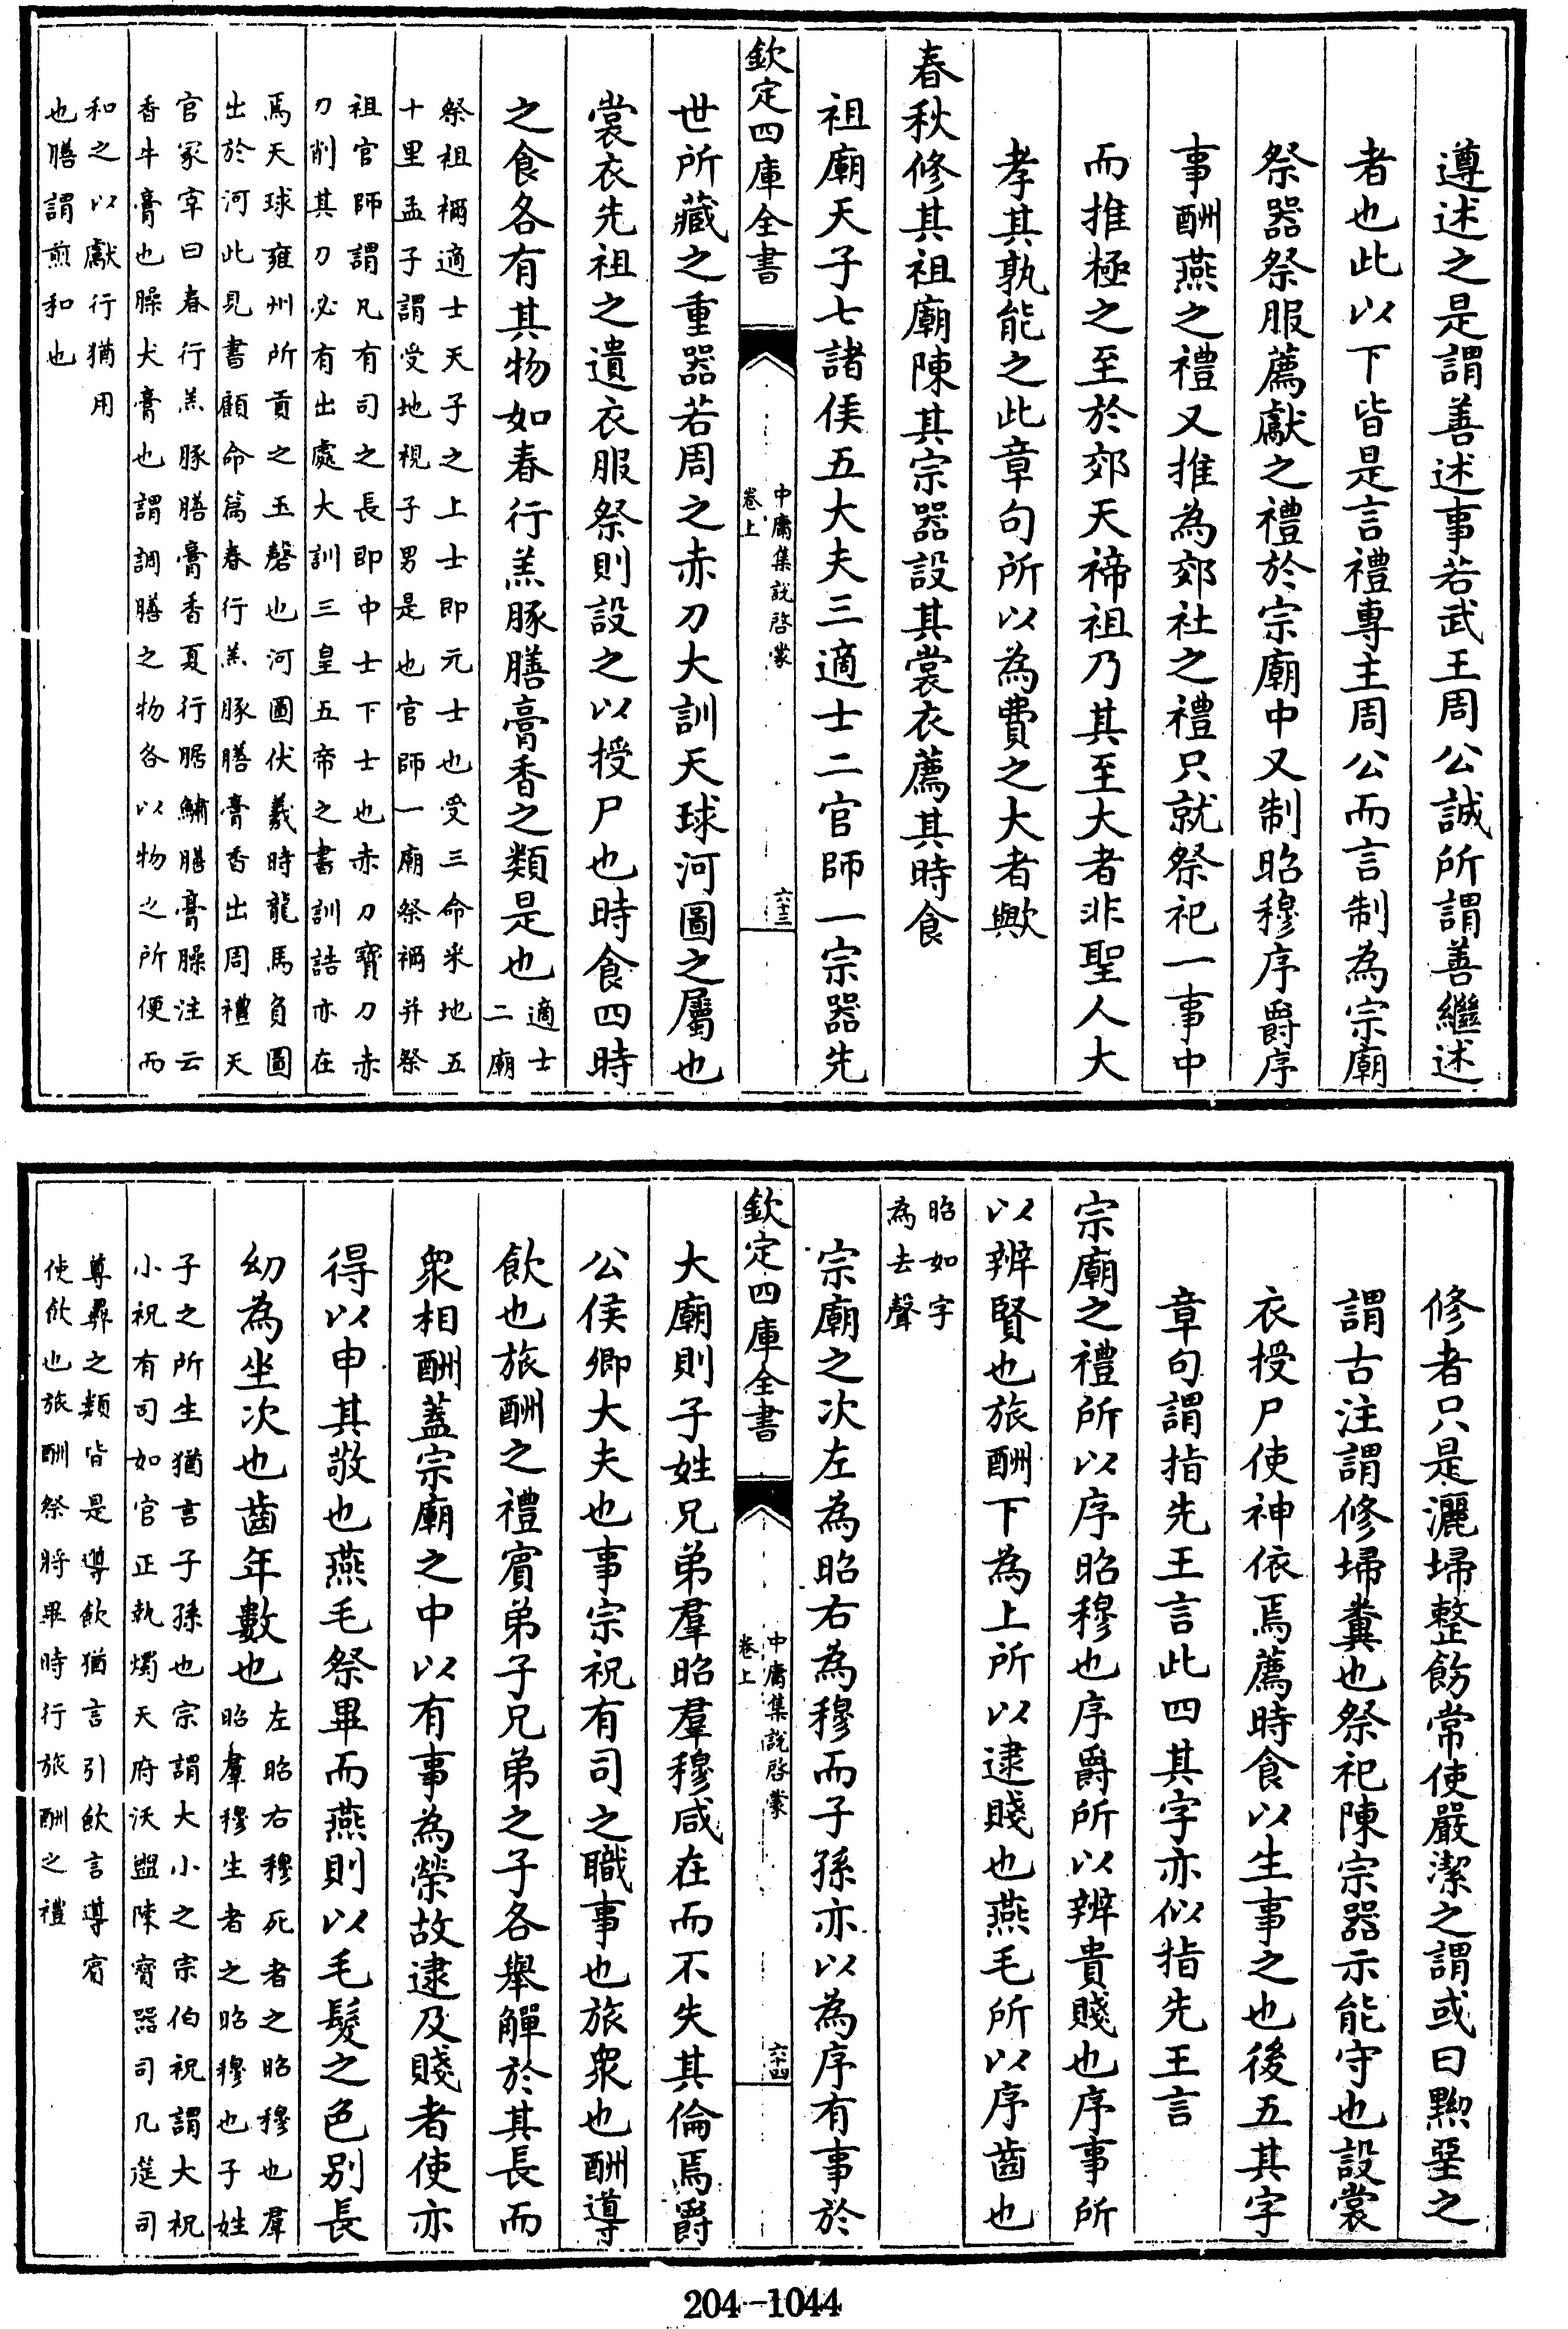 遵述之是謂善述事若武王周公誠所謂善繼述
者也此以下皆是言禮專主周公而言制為宗廟
祭器祭服薦獻之禮於宗廟中又制昭穆序爵序
事酬燕之禮又推為郊社之禮只就祭祀一事中
而推極之至於郊天禘祖乃其至大者非聖人大
孝其孰能之此章句所以為費之大者歟
春秋修其祖廟陳其宗器設其裳衣薦其時食
祖廟天子七諸侯五大夫三適士二官師一宗器先
欽定四庫全書
中庸集說啓蒙
卷上
六十三
世所藏之重器若周之赤刀大訓天球河圖之屬也
裳衣先祖之遺衣服祭則設之以授尸也時食四時
之食各有其物如春行羔豚膳膏香之類是也
適士
二廟
祭祖禰適士天子之上士即元士也受三命采地五
十里孟子謂受地視子男是也官師一廟祭禰并祭
祖官師謂凡有司之長即中士下士也赤刀寶刀赤
刀削其刀必有出處大訓三皇五帝之書訓誥亦在
焉天球雍州所貢之玉磬也河圖伏羲時龍馬負圖
出於河此見書顧命篇春行羔豚膳膏香出周禮天
官冢宰曰春行羔豚膳膏香夏行腒鱐膳膏臊注云
香牛膏也臊犬膏也謂調膳之物各以物之所便而
和之以獻行猶用
也膳謂煎和也
修者只是灑埽整飭常使嚴潔之謂或曰黝堊之
謂古注謂修埽糞也祭祀陳宗器示能守也設裳
衣授尸使神依焉薦時食以生事之也後五其字
章句謂指先王言此四其字亦似指先王言
宗廟之禮所以序昭穆也序爵所以辨貴賤也序事所
以辨賢也旅酬下為上所以逮賤也燕毛所以序齒也
昭如字
為去聲
宗廟之次左為昭右為穆而子孫亦以為序有事於
欽定四庫全書
中庸集說啓蒙
卷上
六十四
大廟則子姓兄弟羣昭羣穆咸在而不失其倫焉爵
公侯卿大夫也事宗祝有司之職事也旅眾也酬導
飲也旅酬之禮賓弟子兄弟之子各舉觶於其長而
眾相酬蓋宗廟之中以有事為榮故逮及賤者使亦
得以申其敬也燕毛祭畢而燕則以毛髮之色別長
幼為坐次也齒年數也
左昭右穆死者之昭穆也羣
昭羣穆生者之昭穆也子姓
子之所生猶言子孫也宗謂大小之宗伯祝謂大祝
小祝有司如宮正執燭天府沃盥陳寶器司几筵司
尊彝之類皆是導飲猶言引飲言導賓
使飲也旅酬祭將畢時行旅酬之禮
204-1044